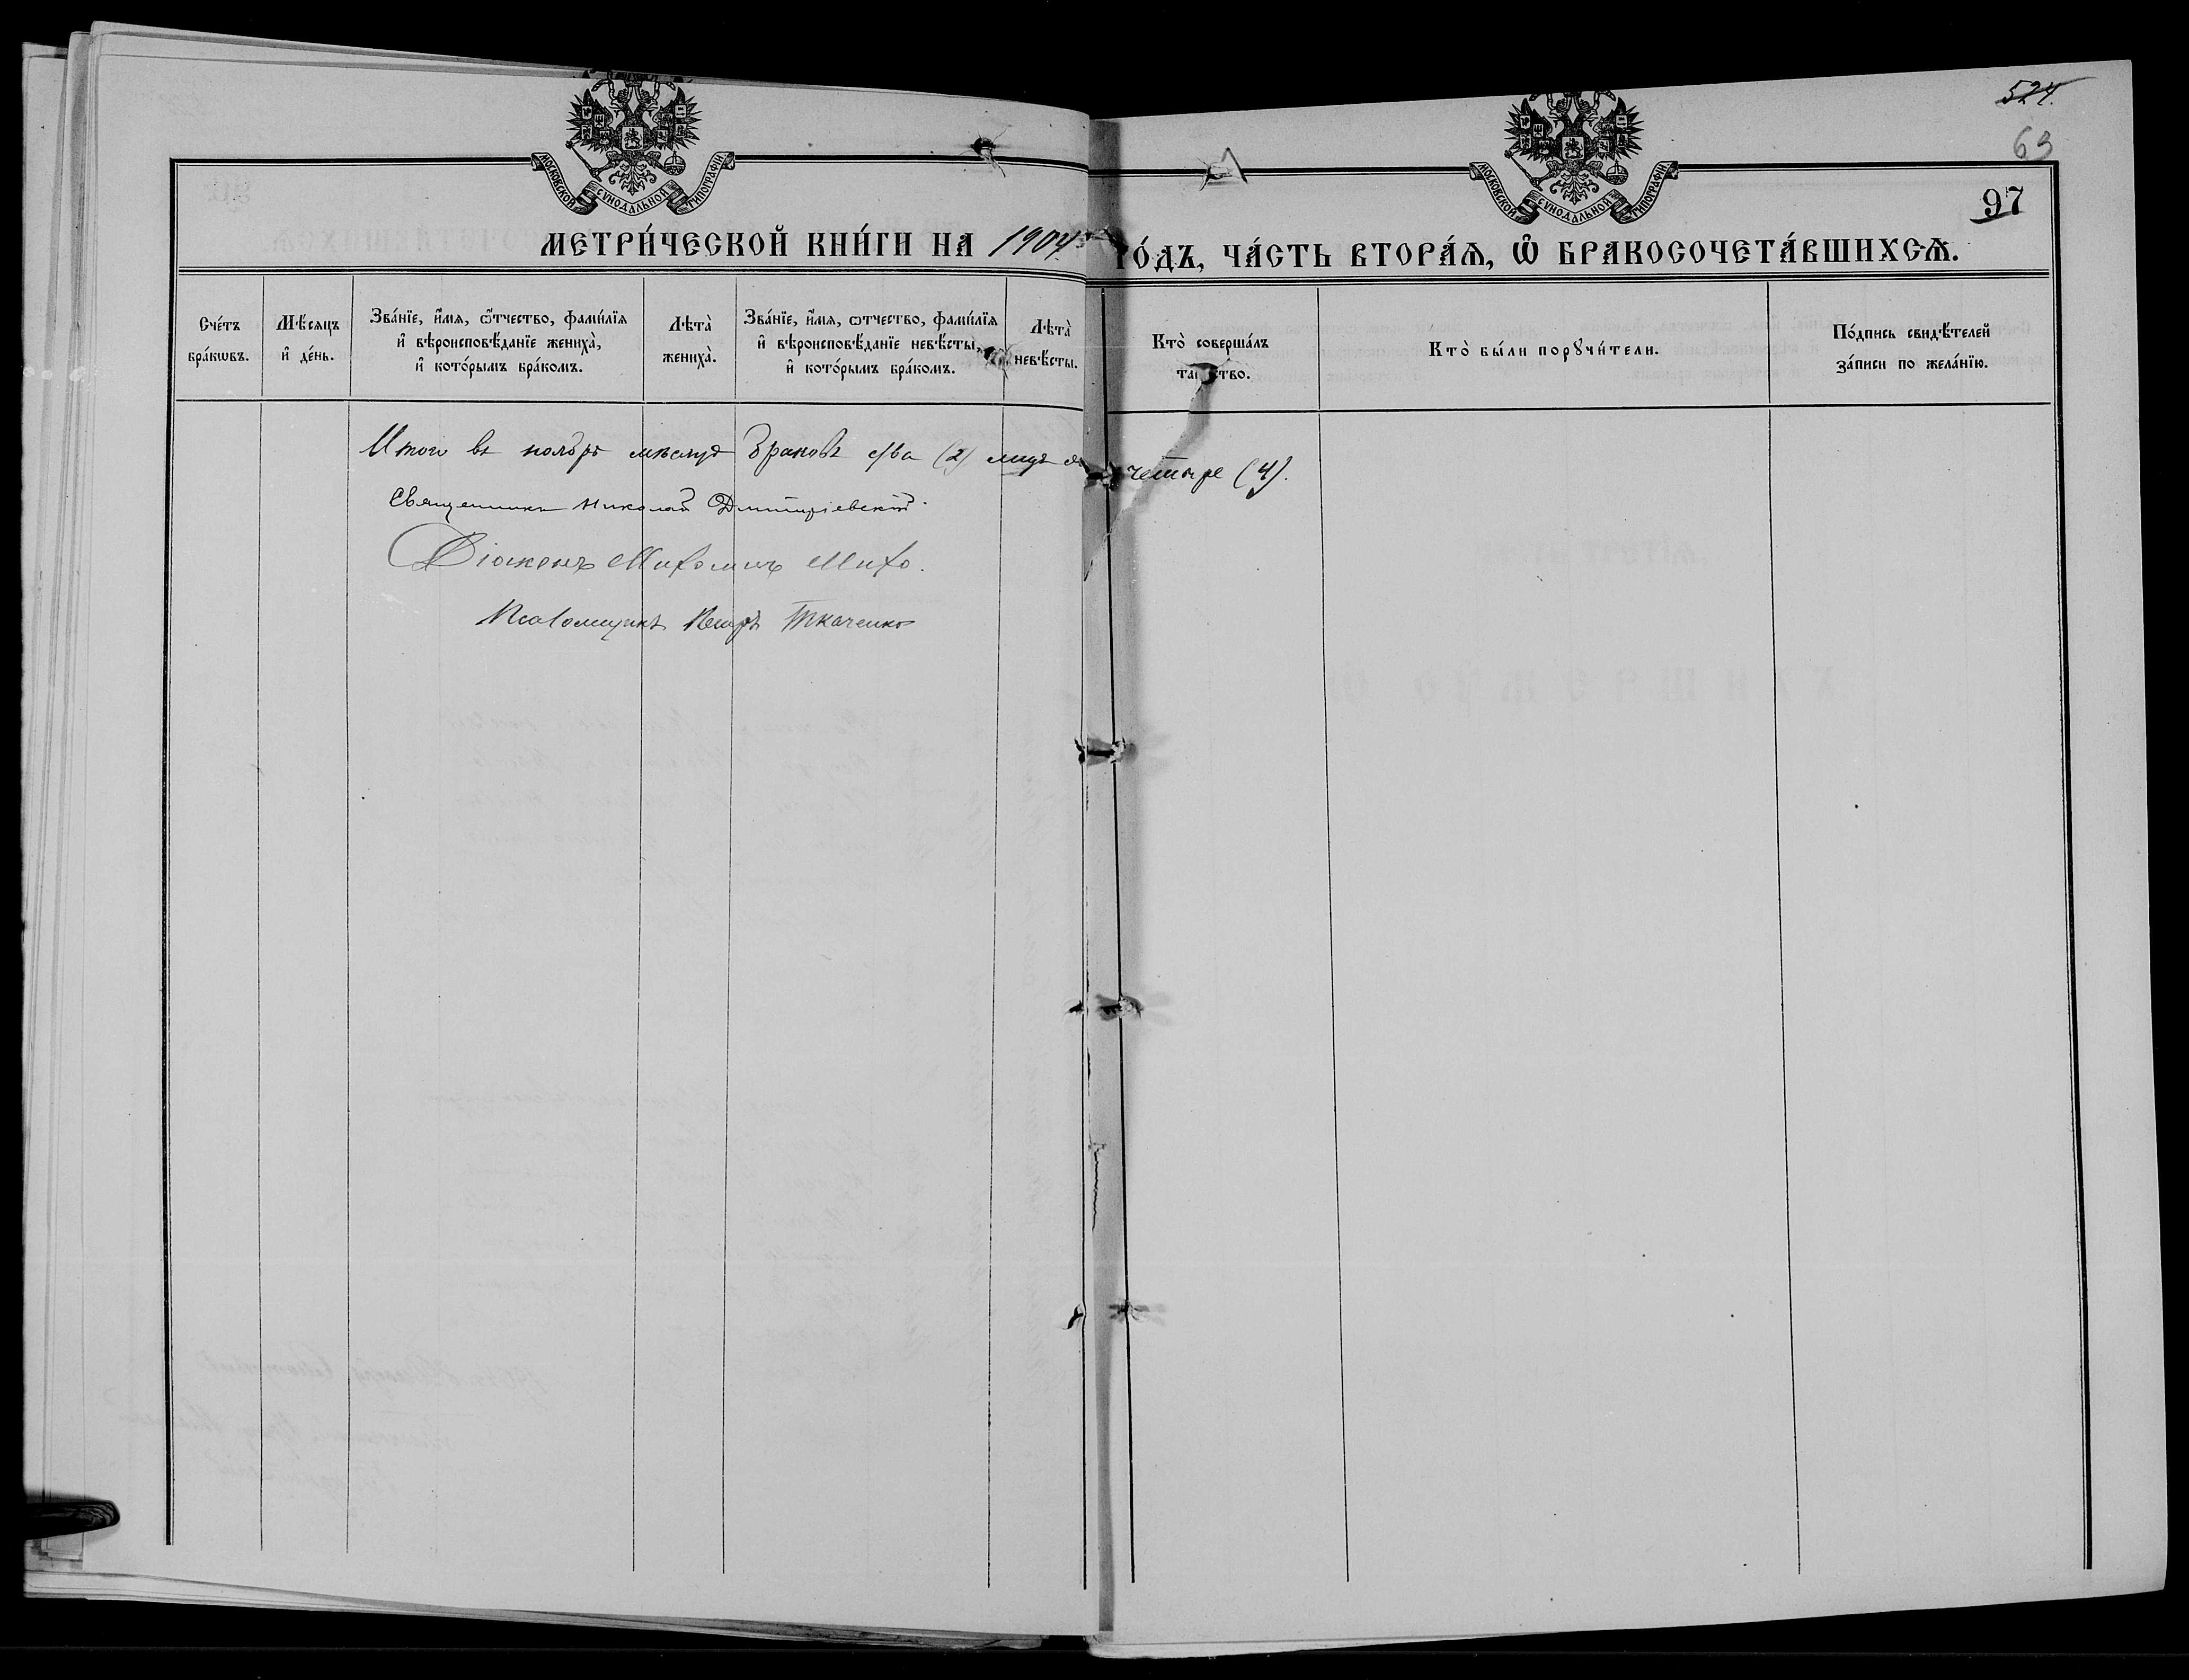 524.
69
97
МОСКОВСКОЙ СѴНОДАЛЬНОЙ ТИПОГРАФІИ
МОСКОВСКОЙ СѴНОДАЛЬНОЙ ТИПОГРАФІИ
МЕТРИ́ЧЕСКОЙ КНИ́ГИ НА 1904 ГО́ДЪ, ЧА́СТЬ ВТОРА́Ѧ, Ѽ БРАКОСОЧЕТА́ВШИХСѦ.
Счéтъ
брáкѡвъ.
Мѣ́сяцъ
и҆ дéнь.
Звáнїе, и҆́мя, ѻ҆́тчество, фамѝлїя
и҆ вѣроисповѣ́данїе женихà,
и҆ котóрымъ брáкомъ.
Лѣтà
женихà.
Звáнїе, и҆́мя, ѻтчество, фамѝлїя
и҆ вѣроисповѣ́данїе невѣ́сты,
и҆ котóрымъ брáкомъ.
Лѣтà
невѣ́сты.
Ктò совершáлъ
таинство.
Ктò бы́ли порꙋчи́тели.
Пóдпись свидѣ́телей
зáписи по желáнїю.
Итого въ ноябрѣ мѣсяцѣ браковъ два (2) лицъ четыре (4).
Священникъ Николай Дмитріевскій.
Діаконъ Михаилъ Михо.
Псаломщикъ Петръ Ткаченко